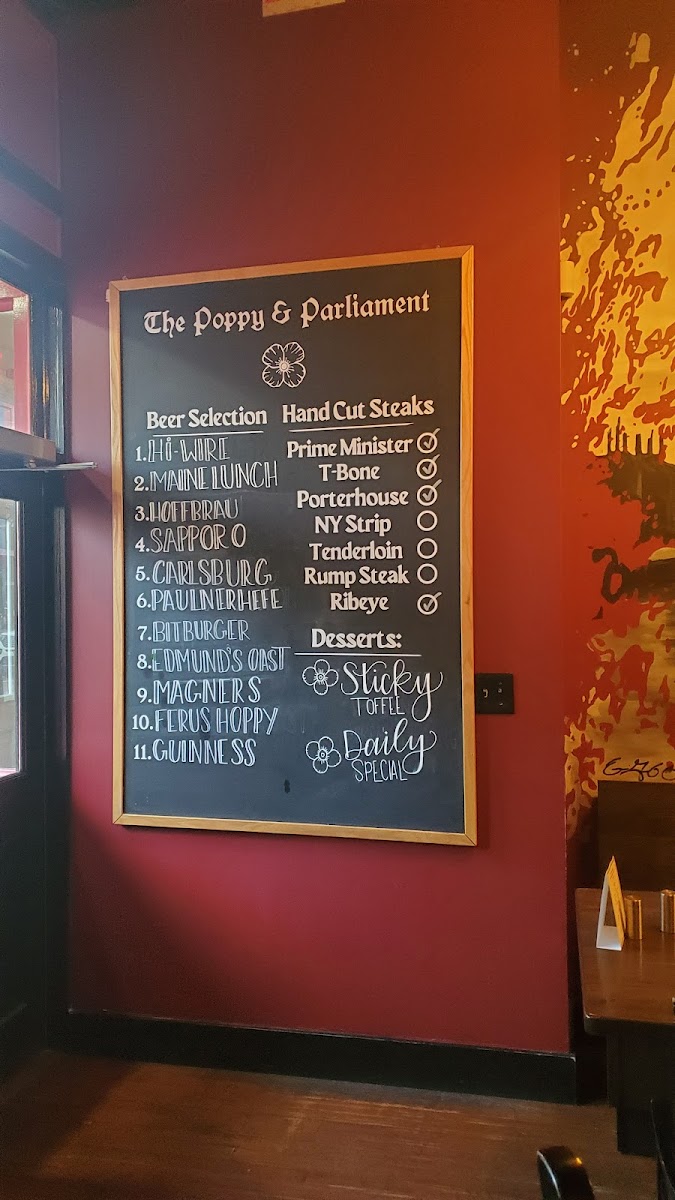 The Poppy & Parliament
Beer Selection
1. Hi-WIRE
2. MAINE LUNCH
3. HOFFBRAU
4. SAPPORO
5. CARLSBURG
6. PAULNERHEFE
7. BITBURGER
8. EDMUND'S OAST
9. MAGNERS
10. FERUS HOPPY
11. GUINNESS
Hand Cut Steaks
Prime Minister
T-Bone
Porterhouse
NY Strip
Tenderloin
Rump Steak
Ribeye
Desserts:
Sticky
TOFFEE
Daily
SPECIAL